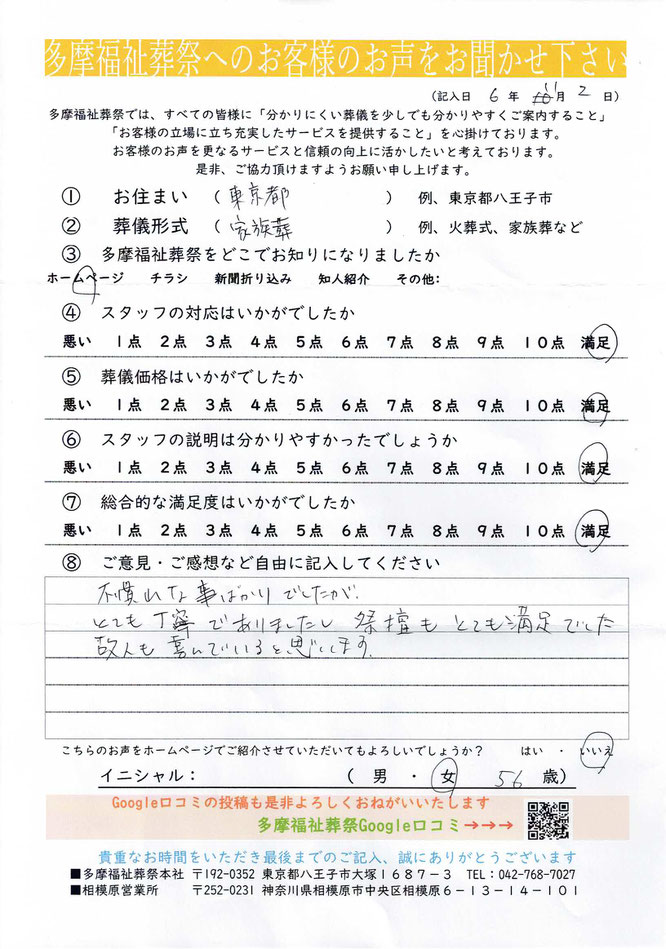 多摩福祉葬祭へのお客様のお声をお聞かせ下さい
(記入日 6 年 11 月 2 日)
多摩福祉葬祭では、すべての皆様に「分かりにくい葬儀を少しでも分かりやすくご案内すること」
「お客様の立場に立ち充実したサービスを提供すること」を心掛けております。
お客様のお声を更なるサービスと信頼の向上に活かしたいと考えております。
是非、ご協力頂けますようお願い申し上げます。
① お住まい ( 東京都 ) 例、東京都八王子市
② 葬儀形式 ( 家族葬 ) 例、火葬式、家族葬など
③ 多摩福祉葬祭をどこでお知りになりましたか
ホームページ チラシ 新聞折り込み 知人紹介 その他:
④ スタッフの対応はいかがでしたか
悪い 1点 2点 3点 4点 5点 6点 7点 8点 9点 10点 満足
⑤ 葬儀価格はいかがでしたか
悪い 1点 2点 3点 4点 5点 6点 7点 8点 9点 10点 満足
⑥ スタッフの説明は分かりやすかったでしょうか
悪い 1点 2点 3点 4点 5点 6点 7点 8点 9点 10点 満足
⑦ 総合的な満足度はいかがでしたか
悪い 1点 2点 3点 4点 5点 6点 7点 8点 9点 10点 満足
⑧ ご意見・ご感想など自由に記入してください
不慣れな事ばかりでしたが、
とても丁寧でありましたし 祭壇も とても満足でした
故人も 喜んでいると思います。
こちらのお声をホームページでご紹介させていただいてもよろしいでしょうか? はい ・ いいえ
イニシャル: ( 男 ・ 女 56 歳)
Google口コミの投稿も是非よろしくおねがいいたします
多摩福祉葬祭Google口コミ→→→
貴重なお時間をいただき最後までのご記入、誠にありがとうございます
■多摩福祉葬祭本社 〒192-0352 東京都八王子市大塚1687-3 TEL:042-768-7027
■相模原営業所 〒252-0231 神奈川県相模原市中央区相模原6-13-14-101